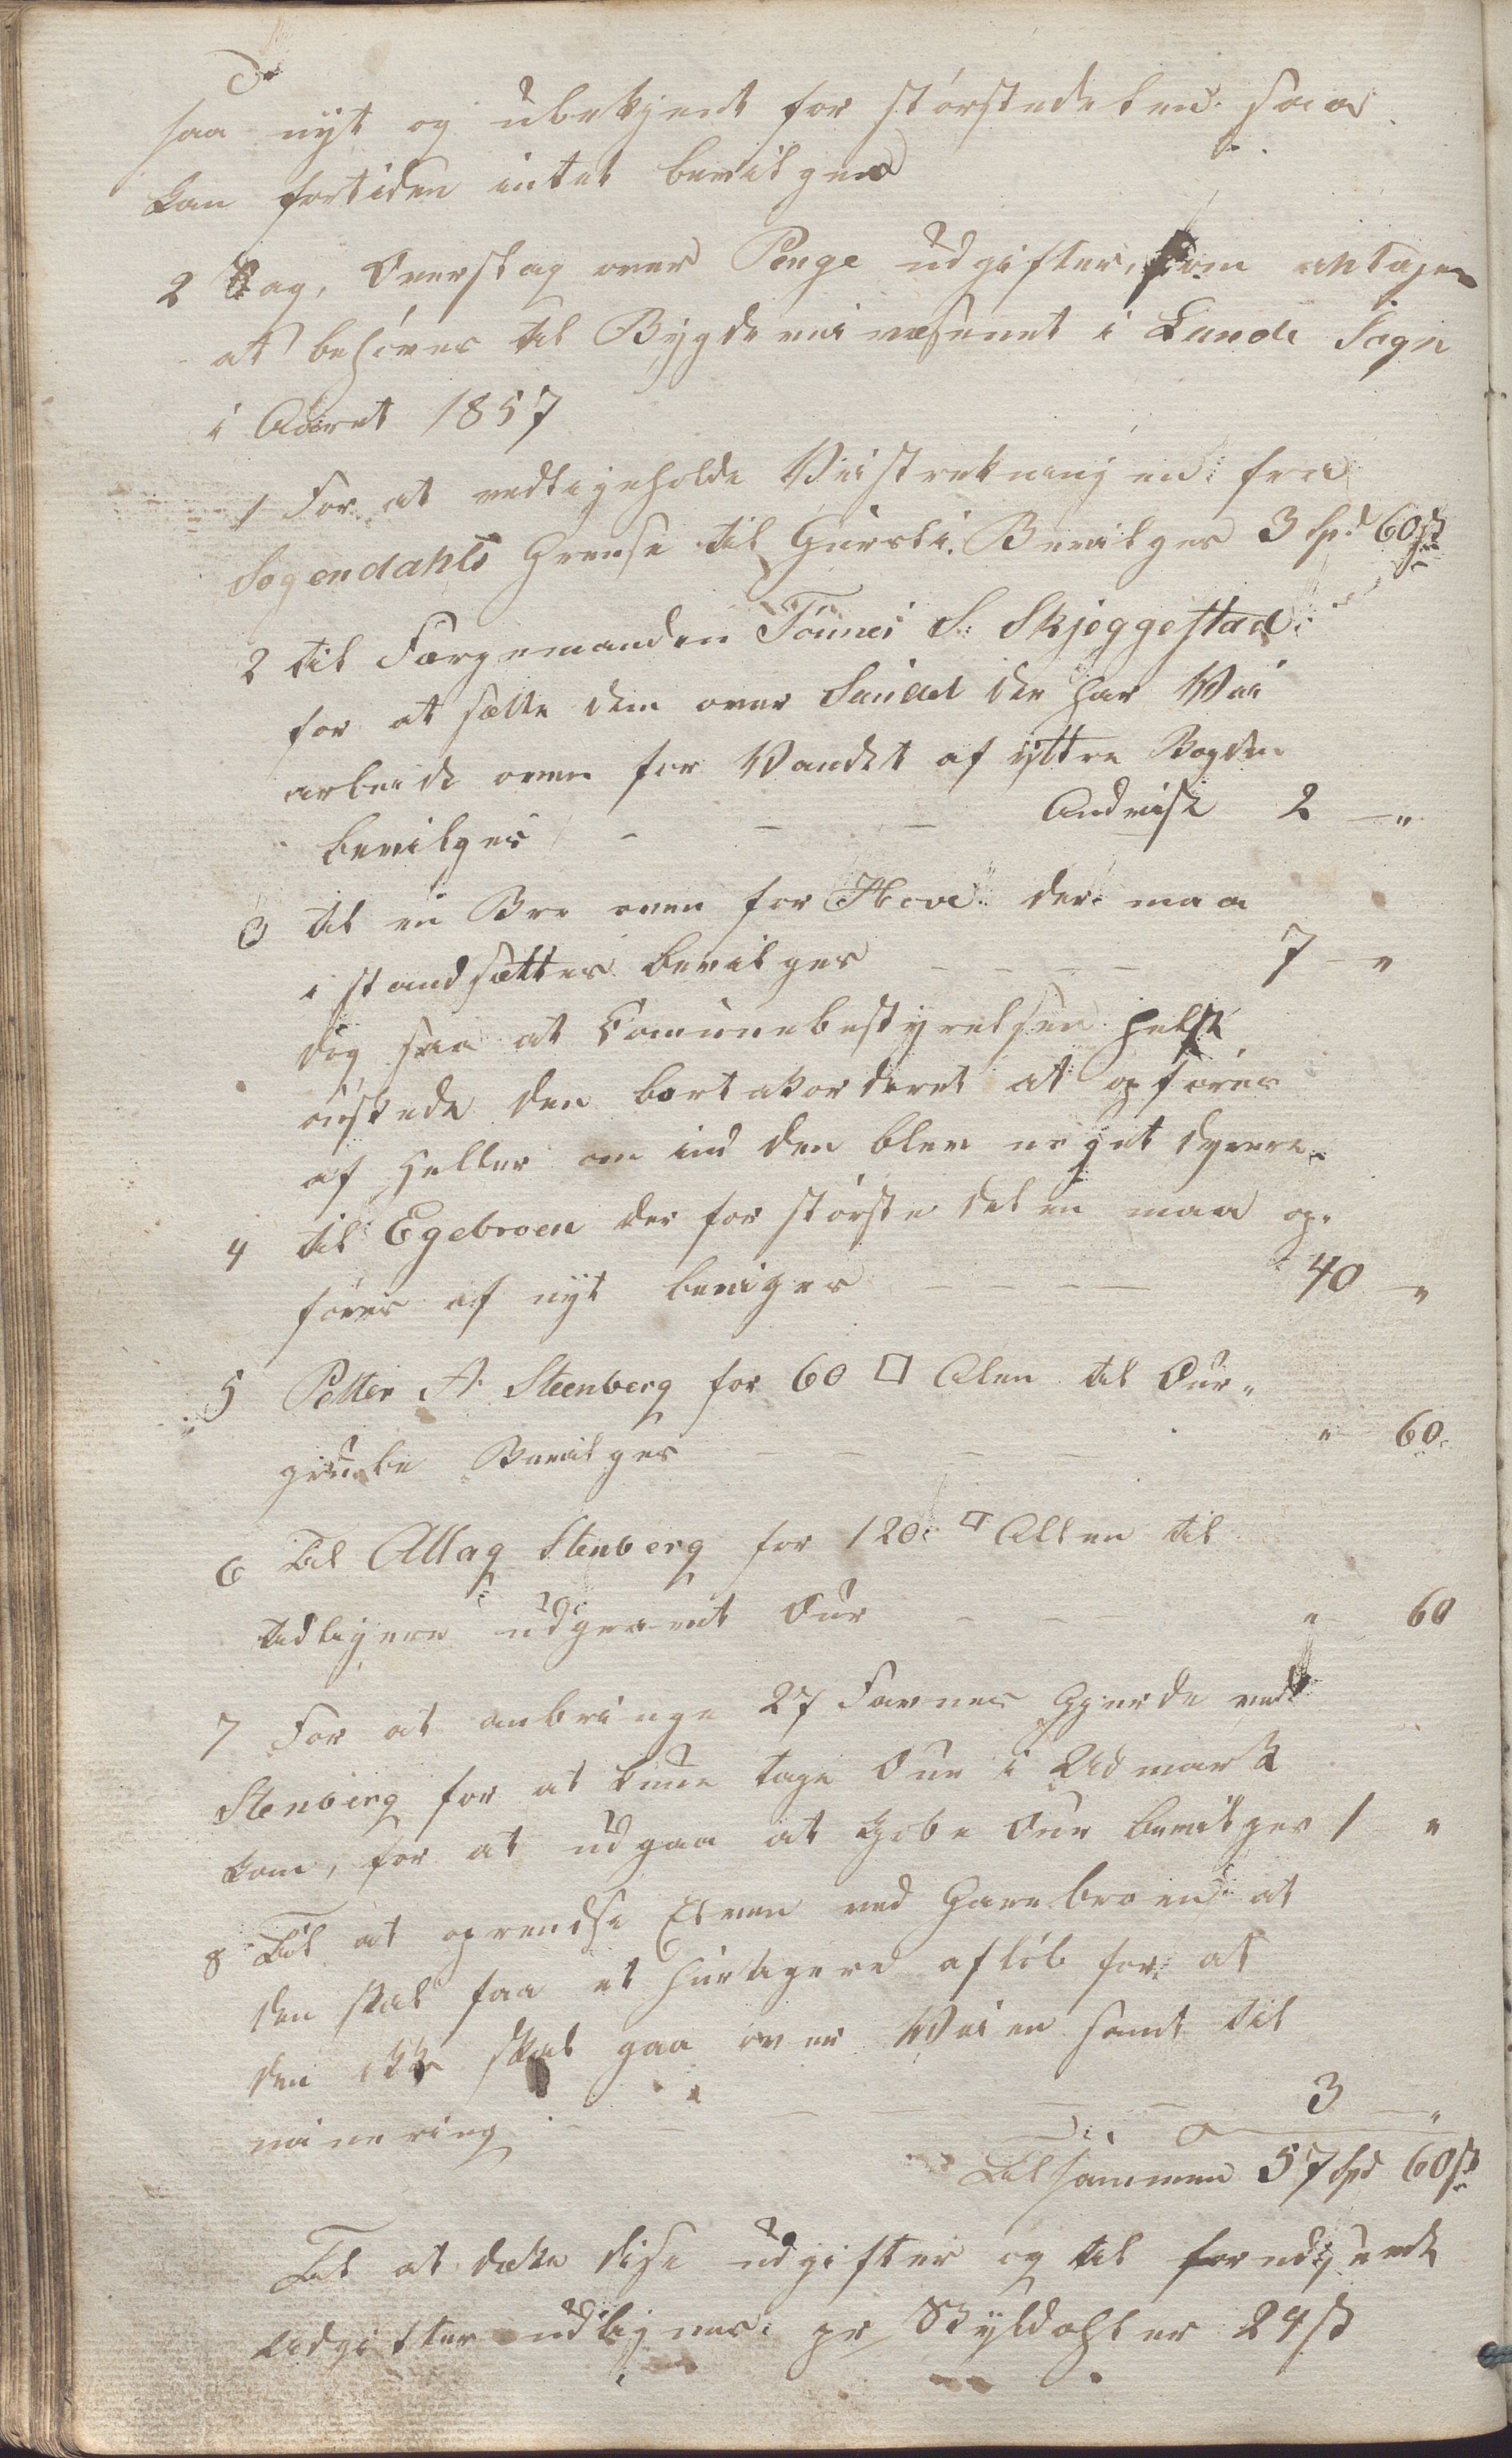 saa nyt og ubekjent for størstedelen saa
kan fortiden intet bevilges
2 Sag, Overslag over Penge udgifter, som antages
at behøves til Bygdeveivæsenet i Lunde Sogn
i Aaret 1857
1 For at vedligeholde Veistrekningen fra
Sogendahls Grense til Gursli. Bevilges 3 Spd 60 ß
2 til Færgemanden Tønnes S. Skjeggestad
for at sætte dem over Sundet der har Vei
arbeide oven for Vandet af yttre Bygden
bevilges - - - 2 - "
3 til en Bro oven for Hove der maa
istandsættes bevilges - - - - 7 - "
dog saa at Comunebestyrelsen helst
ønskede den bortakorderet at opføres
af Heller om end den blev noget dyrere.
4 til Egebroen der for største delen maa op-
føres af nyt beviges - - - - 40 - "
5 Petter A. Steenberg for 60 □ Alen til Our-
grube Bevilges - - - - " 60
6 Til Attag Stenberg for 120 □ Allen til
tidligere udgravet Our - - - " 60
7 For at anbringe 27 Favner Gjerde ved
Stenberg for at kune tage Our i Udmark
kom, for at udgaa at kjøbe Our bevilges 1 "
8 Til at oprendse Elven ved Ganebroen at
den skal faa et hurtigere afløb for at
den ikke skal gaa over Veien samt til
minering - - - - - 3 - "
Tilsammen 57 Spd 60 ß
Til at dække dise udgifter og til
Udgifter udlignes pr Skyldahler 24 ß